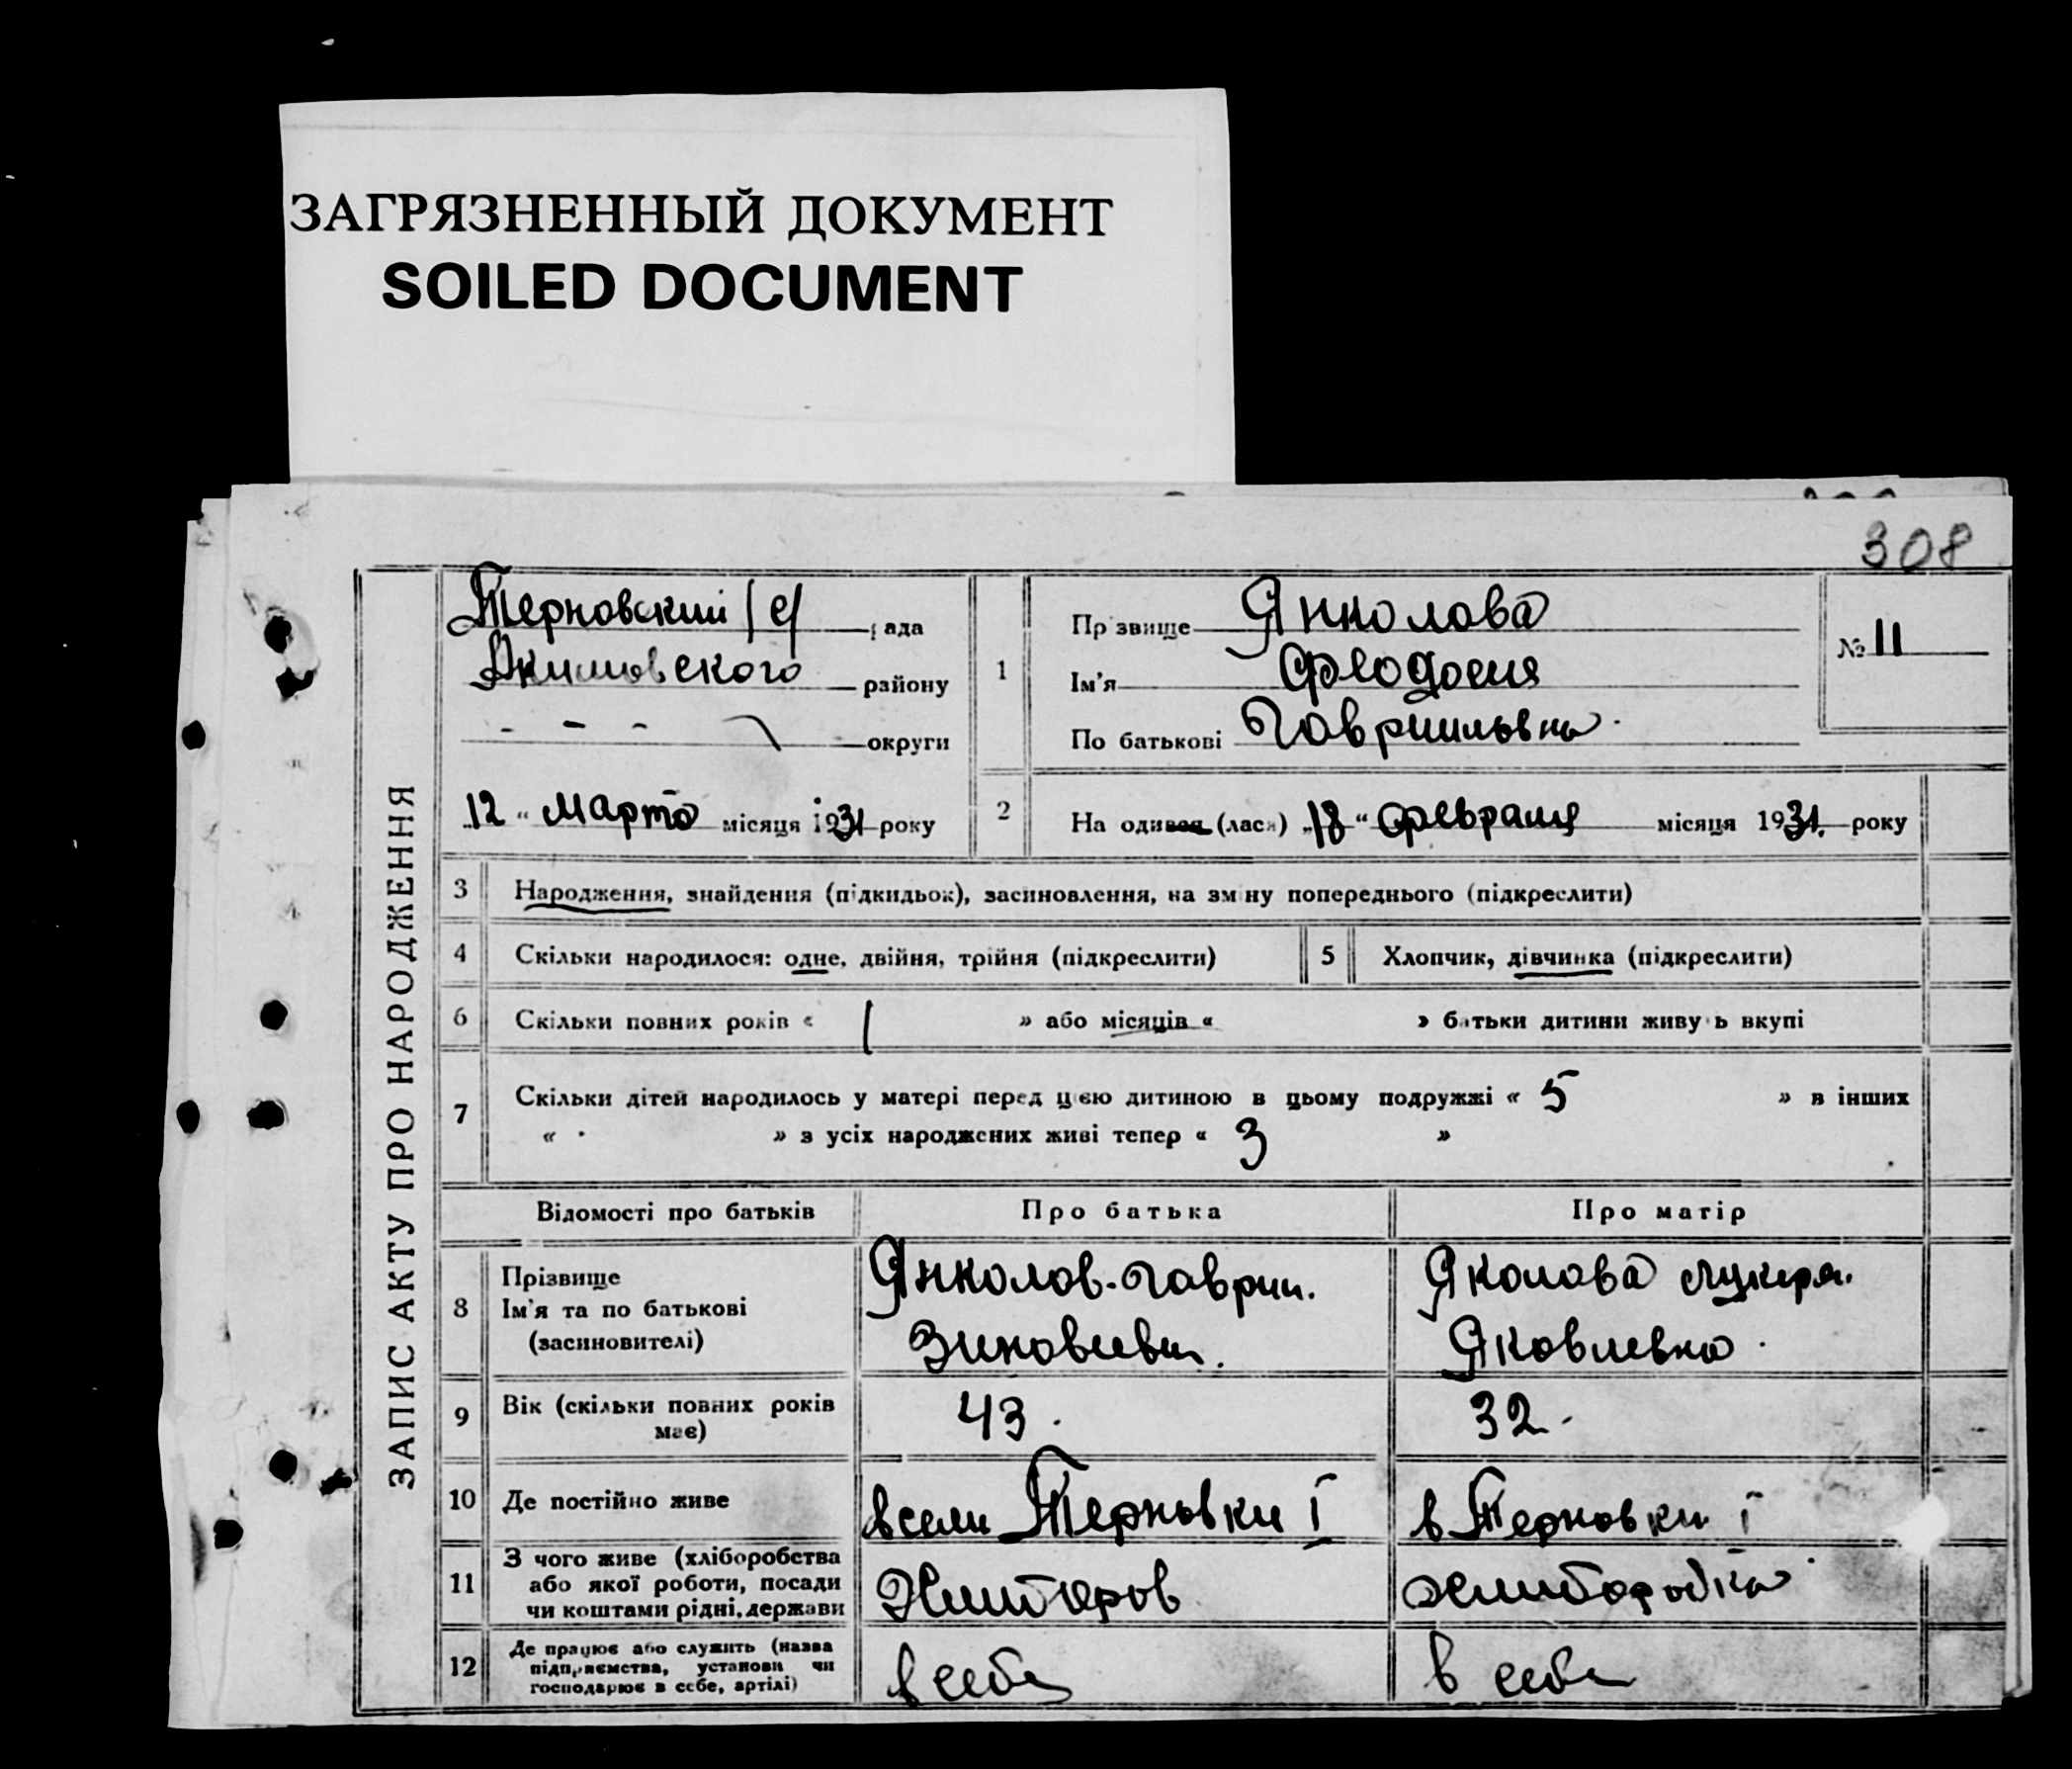 ЗАГРЯЗНЕННЫЙ ДОКУМЕНТ
SOILED DOCUMENT
308
ЗАПИС АКТУ ПРО НАРОДЖЕННЯ
Терновский /с/ рада
Акимовского району
округи
12 " марта місяця 1931 року
1
Прізвище Янколова
Ім'я Феодосия
По батькові Гавриильвна
№ 11
2
На одився (лася) „18" февраля місяця 1931. року
3 Народження, знайдення (підкидьок), засиновлення, на зміну попереднього (підкреслити)
4 Скільки народилося: одне, двійня, трійня (підкреслити)
5 Хлопчик, дівчинка (підкреслити)
6 Скільки повних років « » або місяців « » батьки дитини живуть вкупі
7 Скільки дітей народилось у матері перед цією дитиною в цьому подружжі « 5 » в інших
« » з усіх народжених живі тепер « 3 »
Відомості про батьків Про батька Про матір
8 Прізвище
Ім'я та по батькові
(засиновителі)
Янколов Гаврии.
Зиновиевич.
Яколова Лукеря.
Яковлевна
9 Вік (скільки повних років має) 43. 32.
10 Де постійно живе в сели Терновки I в Терновки I
11 З чого живе (хліборобства
або якої роботи, посади
чи коштами рідні, держави
12 Де працює або служить (назва
підприємства, установи чи
господарює в себе, артілі)
в себе в себе